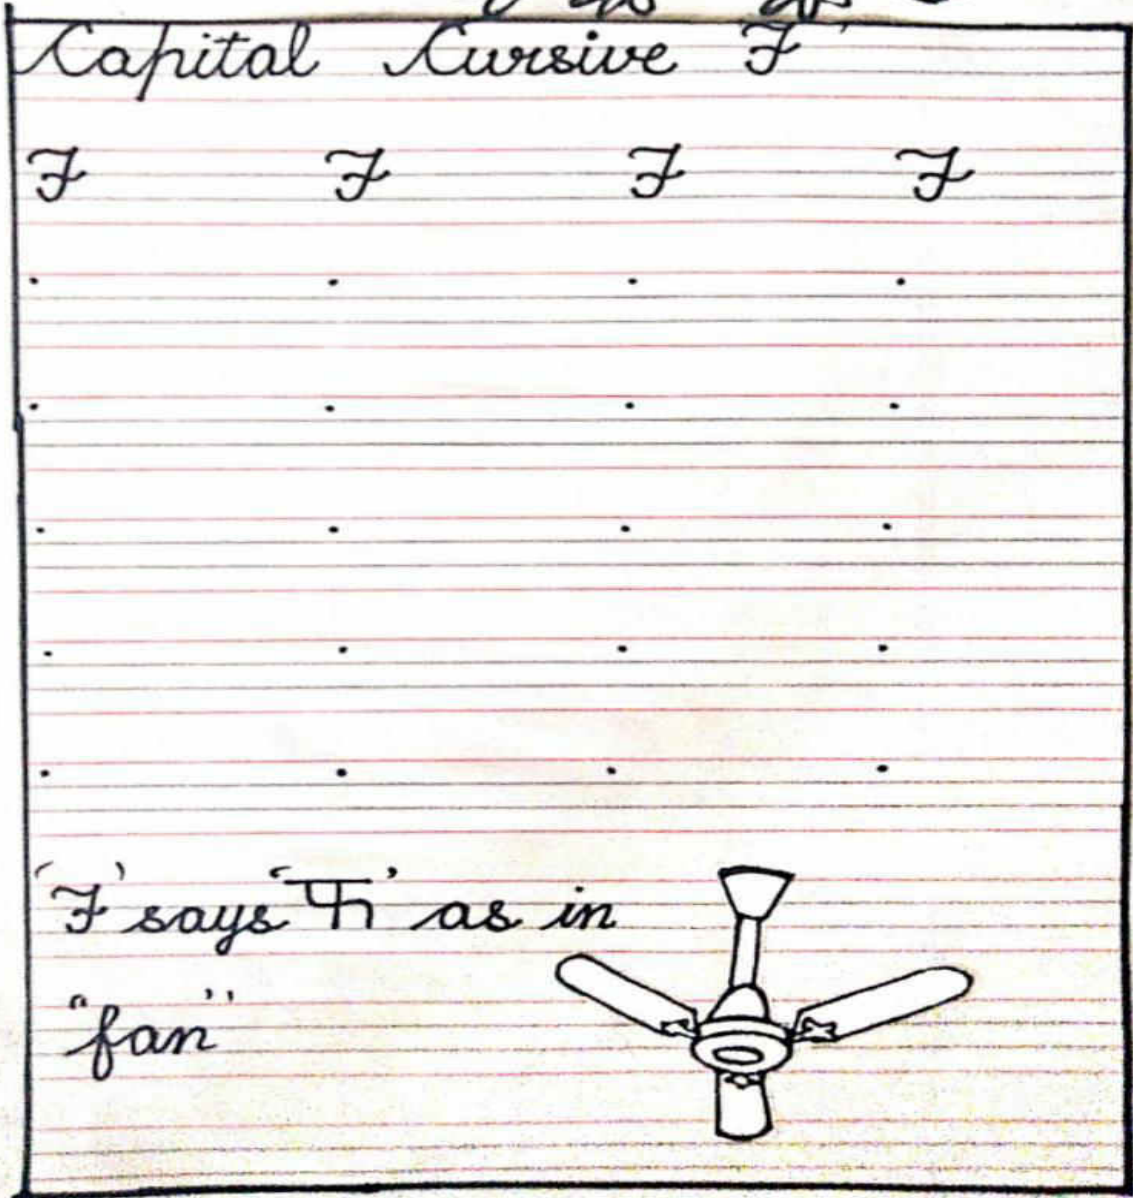 Capital Cursive 'F'
F F F F
'F' says 'फ' as in
"fan"